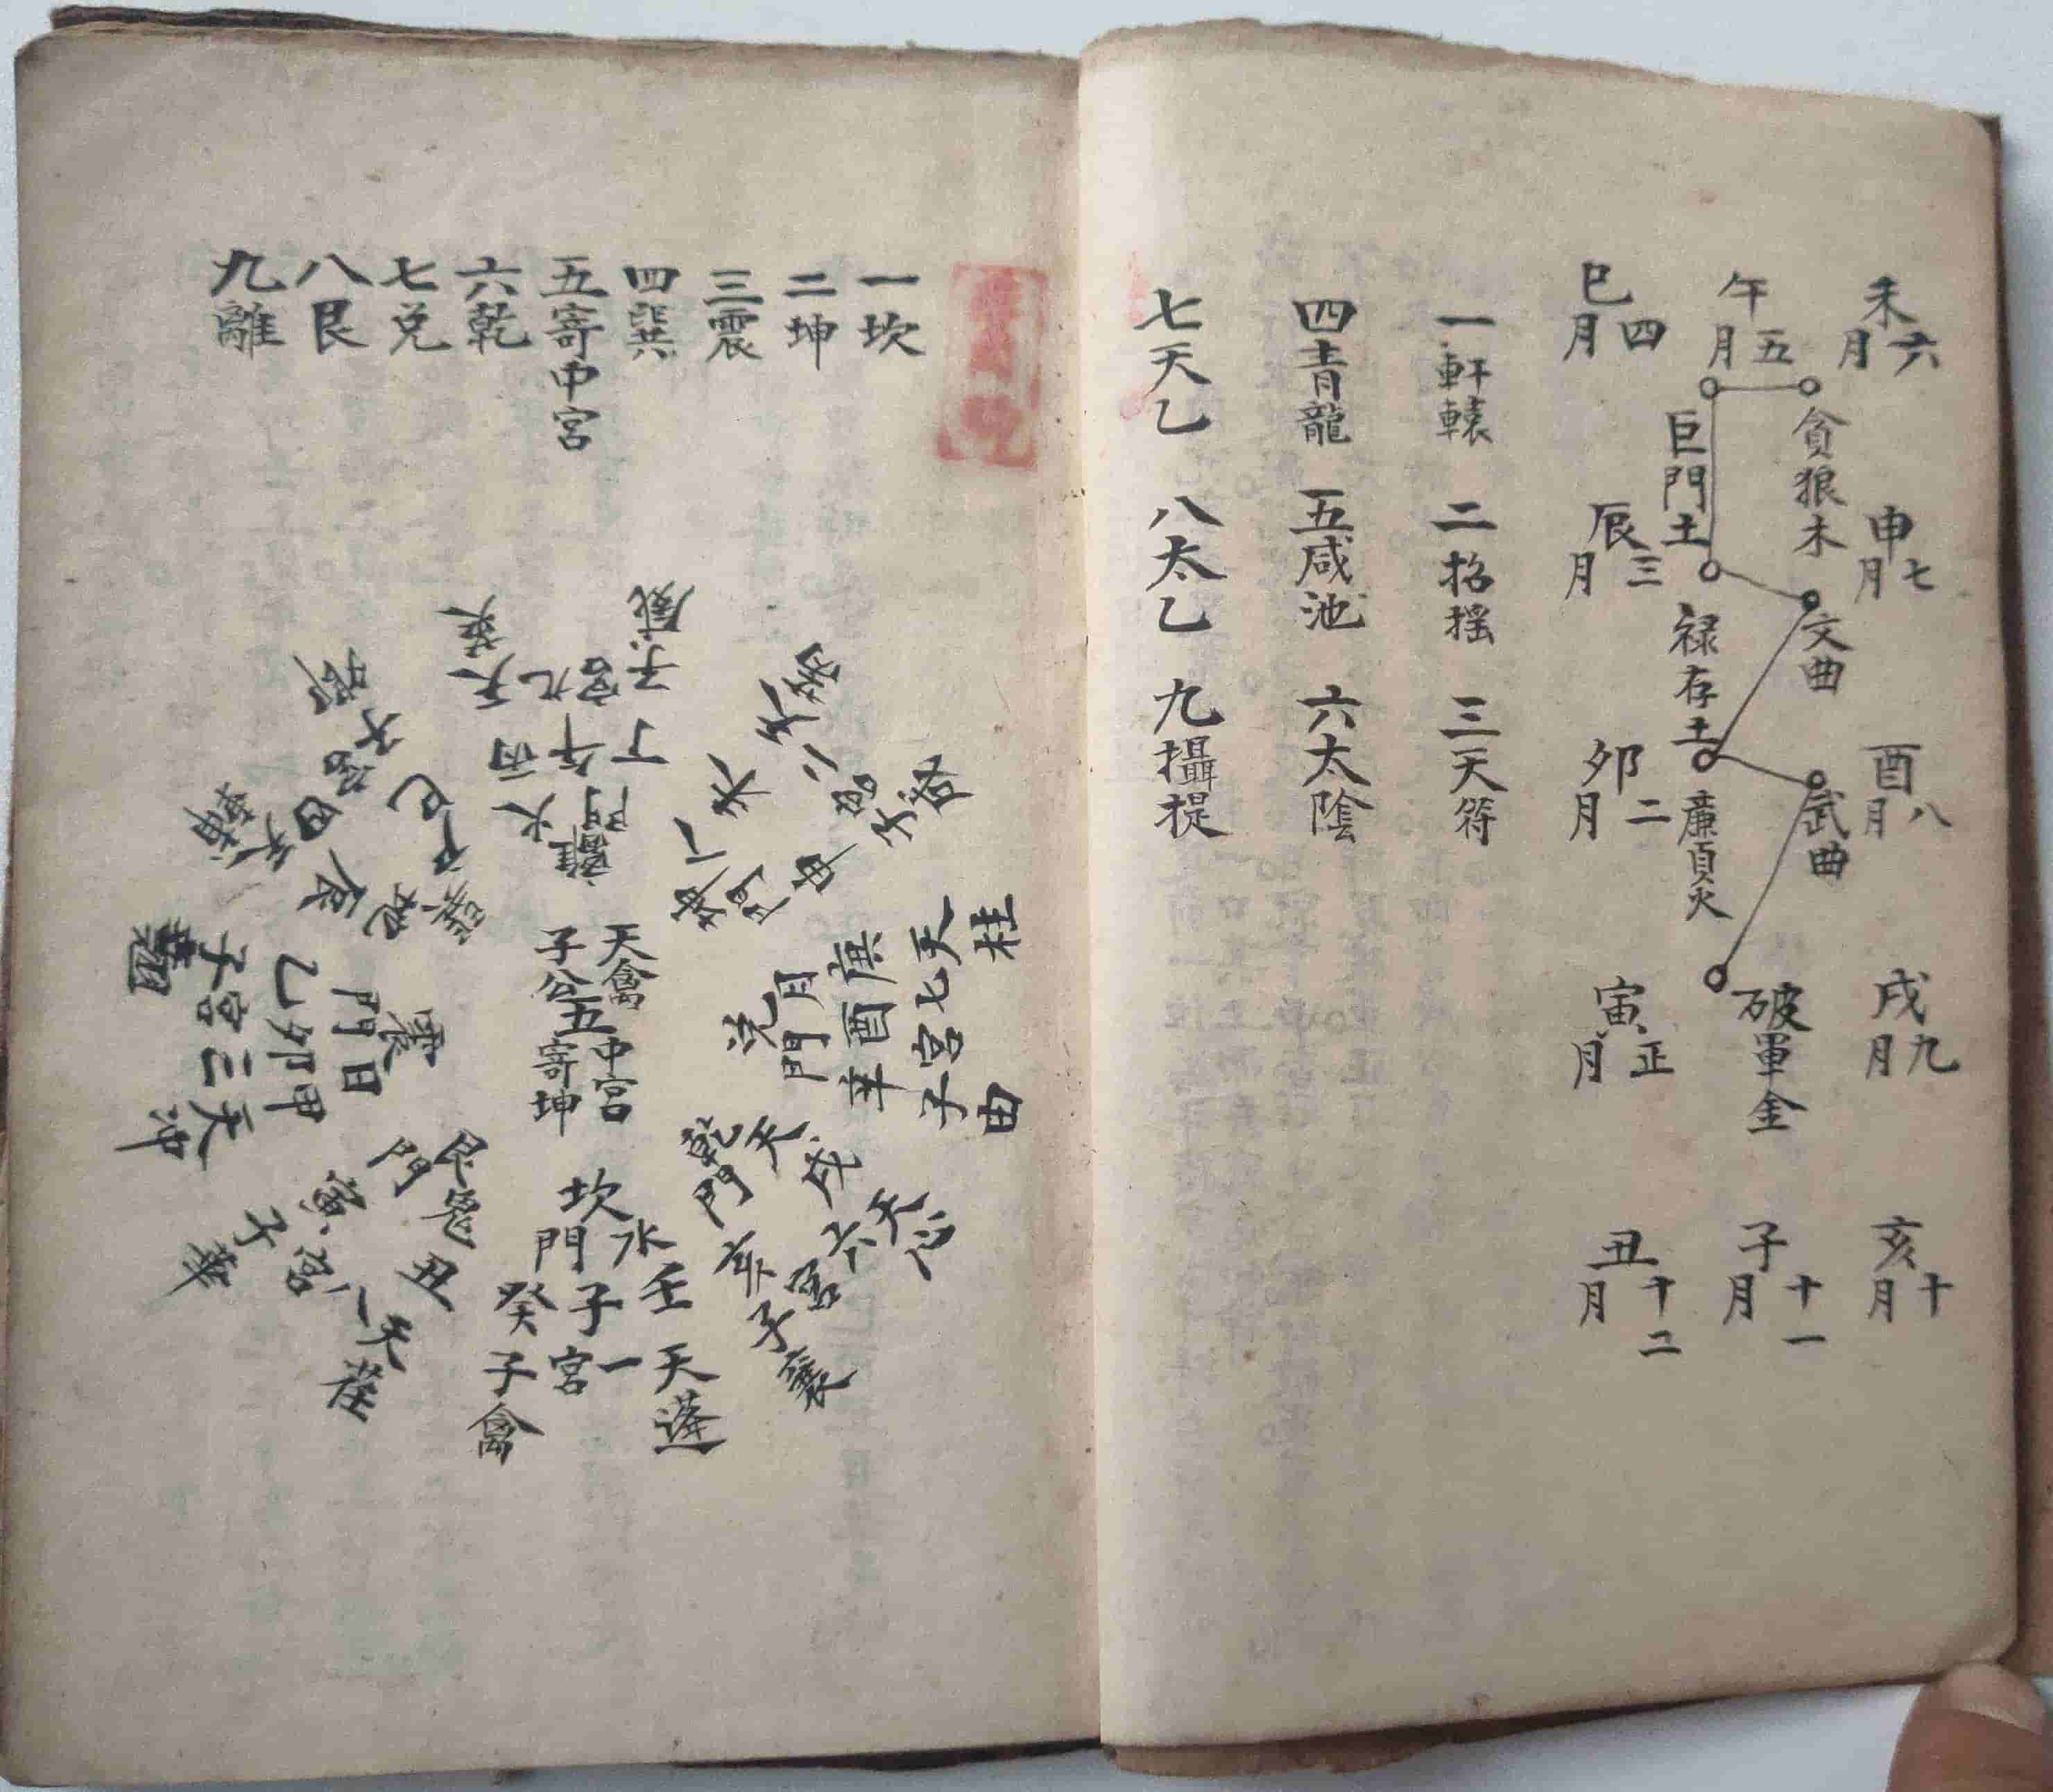 未六月
午五月
巳四月
貪狼木
巨門土
申七月
辰三月
文曲
禄存土
酉八月
卯二月
武曲
廉貞火
戌九月
寅正月
破軍金
亥十月
子十一月
丑十二月
一軒轅 二招摇 三天符
四青龍 五咸池 六太陰
七天乙 八太乙 九攝提
一坎
二坤
三震
四巽
五寄中宮
六乾
七兌
八艮
九離
離門火
丙午丁
天英九宮子威
坤門
天柱七宮子由
庚酉辛
月兌門
天禽子公
五中宮寄坤
震門日
甲卯乙
天冲三宮子翹
乾門
天心六宮子襄
艮門
丑寅
八宮子
坎門水
壬子癸
天蓬一宮子禽